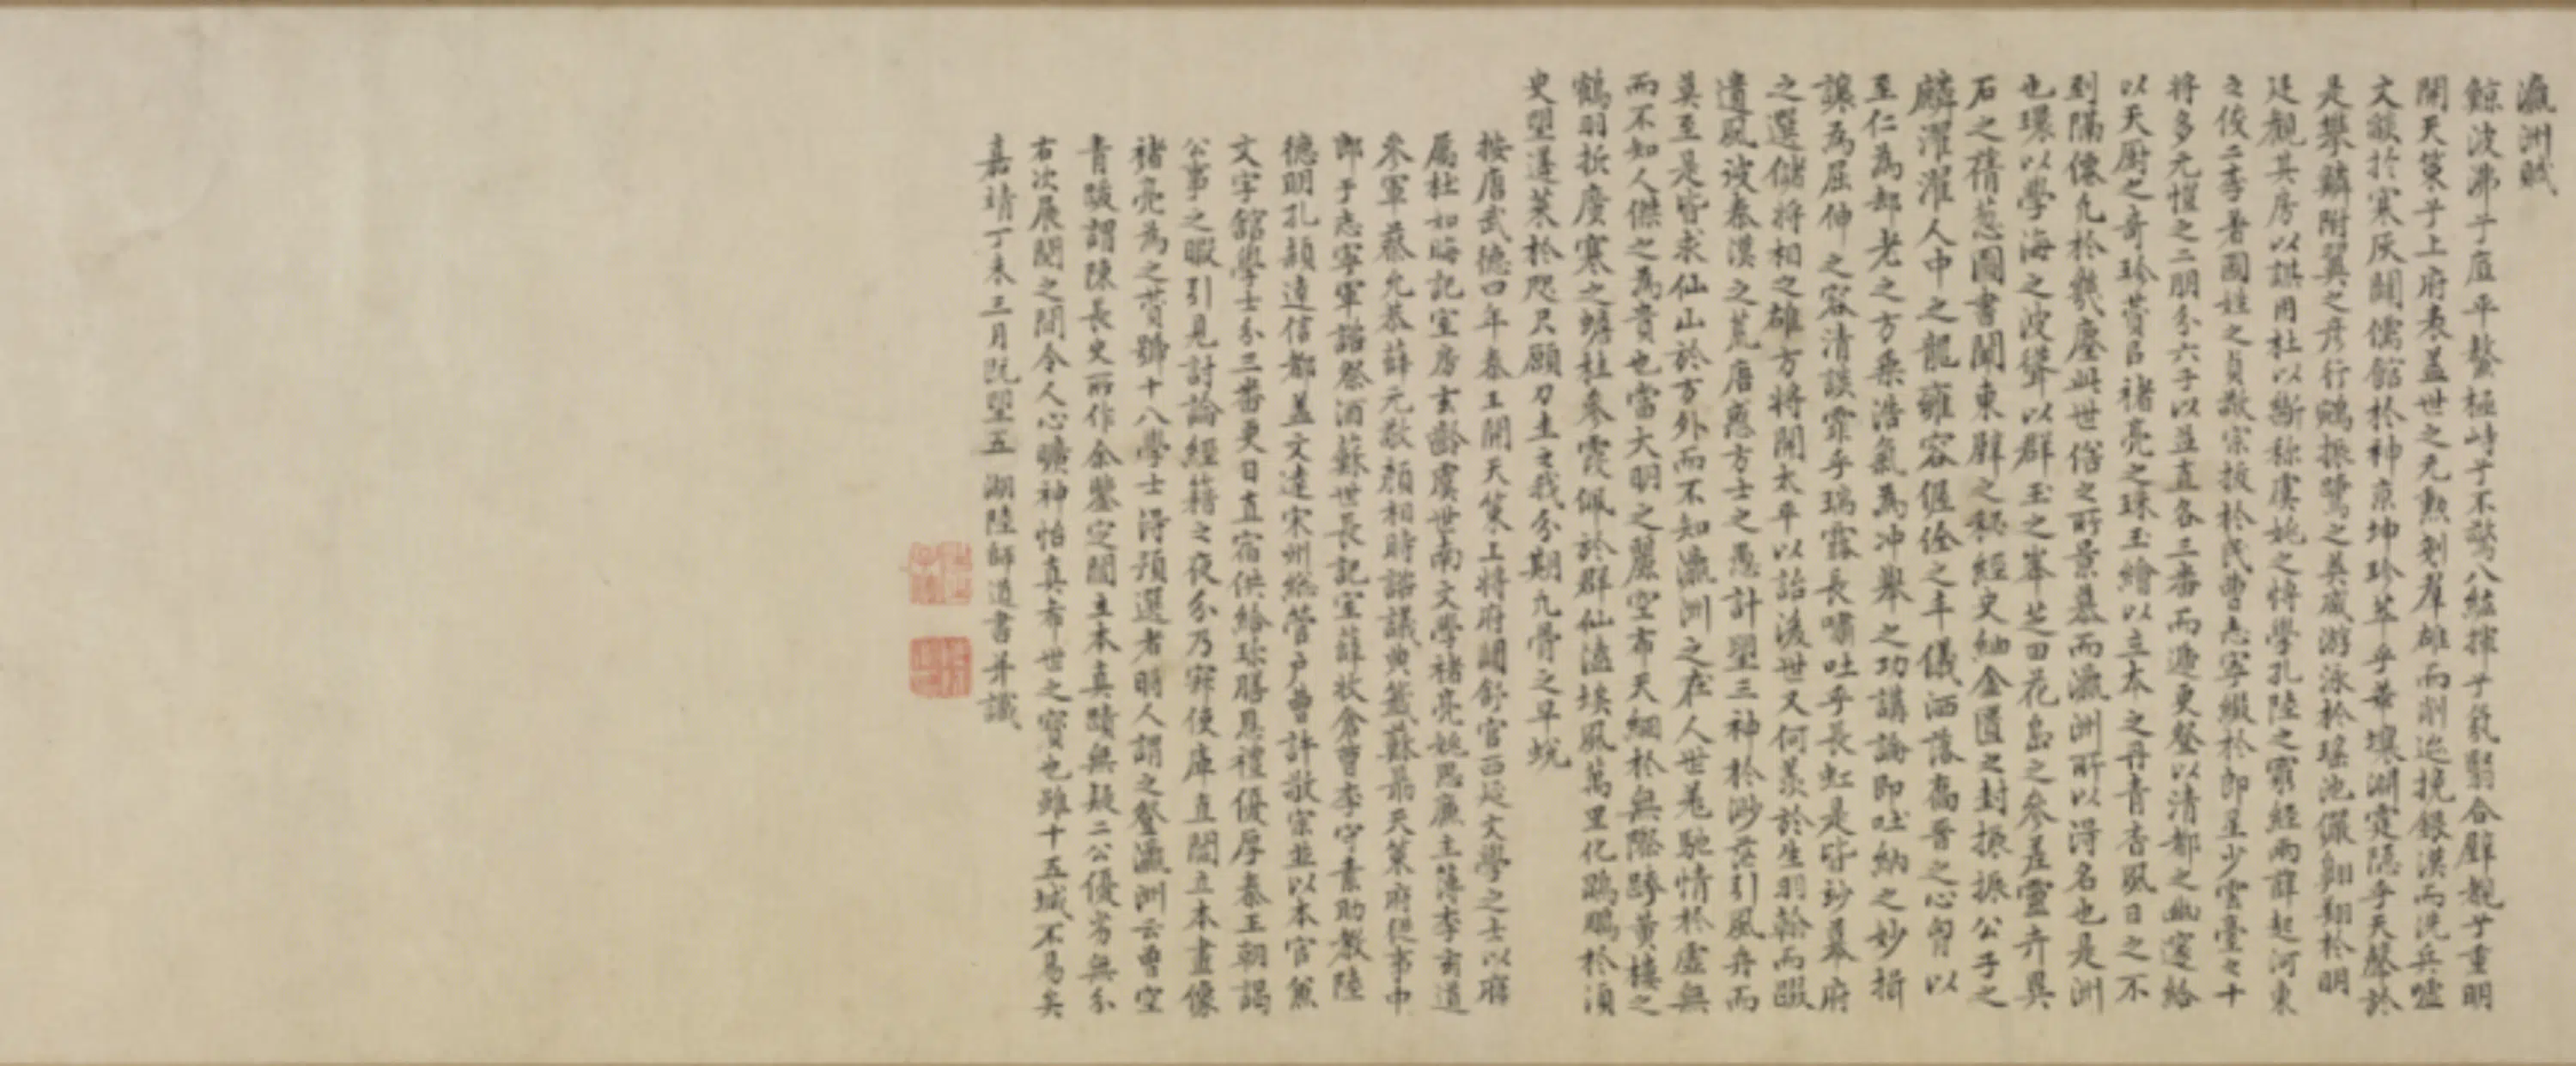 瀛洲賦
鯨波沸于厓平鰲極峙于不驚八紘揮于氣翳合辟覩于重明
開天策于上府表蓋世之元勲剗羣雄而削迹挽銀漢而洗兵噓
文談於寒灰闢儒館於神京坤珍萃乎華壤淵雲隱乎天聲於
是攀鱗附翼之彦行鵷振鷺之英咸游泳於瑤池儼翺翔於明
廷觀其房以謀用杜以斷称虞姚之博學孔陸之窮經兩薛起河東
之俊二李著國姓之貞敬宗掖於民曹志寧綴於郎星少雲臺之十
將多元愷之二朋分六子以並直各三番而遞更登以清都之幽邃給
以天厨之奇珍贊目褚亮之珠玉繪以立本之丹青杳夙日之不
到隔僊凡於幾塵此世俗之所景慕而瀛洲所以得名也是洲
也環以學海之波聳以群玉之峯芝田花島之參差靈卉異
石之蒨葱圖書闢東壁之秘經史紬金匱之封振振公子之
麟濯濯人中之龍雍容偓佺之丰儀洒落喬晋之心胷以
至仁為却老之方乘浩氣為冲舉之功講論即吐納之妙揖
讓為屈伸之容清談霏乎瑞露長嘯吐乎長虹是皆妙幕府
之選儲將相之雄方將開太平以詒後世又何羡於生羽翰而躡
遺風彼秦漢之荒唐惑方士之愚計望三神於渺茫引風舟而
莫至是皆求仙山於方外而不知瀛洲之在人世羗馳情於虛無
而不知人傑之為貴也當大明之麗空布天綱於無際跨黃樓之
鶴羽折廣寒之蟾桂參霞佩於群仙溘埃風萬里化鵾鵬於須
史望蓬萊於咫尺願刀圭之我分期凡骨之早蛻
按唐武德口年秦王開天策上將府闢舒官西延文學之士以府
屬杜如晦記室房玄齡虞世南文學褚亮姚思廉主簿李玄道
叅軍蔡允恭薛元敬顏相時諮議典籤蘇勗天策府從事中
郎于志寧軍諮祭酒蘇世長記室薛收倉曹李守素助教陸
德明孔頴達信都蓋文達宋州緫管户曹許敬宗並以本官兼
文字舘學士分三番更日直宿供給珍膳恩禮優厚秦王朝謁
公事之暇引見討論經籍之夜分乃寐使庫直閻立本畫像
褚亮為之贊號十八學士得預選者時人謂之登瀛洲云曹空
青跋謂陳長史所作余鑒定閻立本真蹟無疑二公優劣無分
右次展閱之間令人心曠神怡真希世之寳也雖十五城不易矣
嘉靖丁未三月既望五湖陸師道書并識